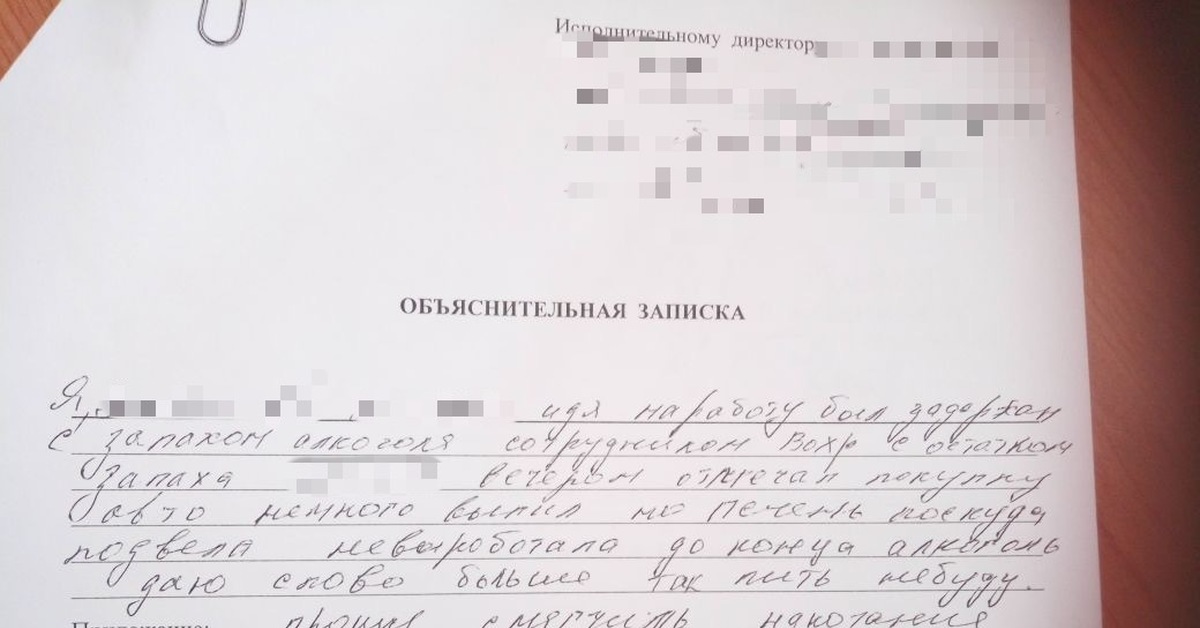 Исполнительному директор
ОБЪЯСНИТЕЛЬНАЯ ЗАПИСКА
Я, идя на работу был задержан
с запахом алкоголя сотрудником Вохр с остатком
запаха вечером отмечал покупку
авто немного выпил но печень паскуда
подвела невыроботала до конца алкоголь
даю слово больше так пить небуду.
Приложение: прошу смягчить накозание